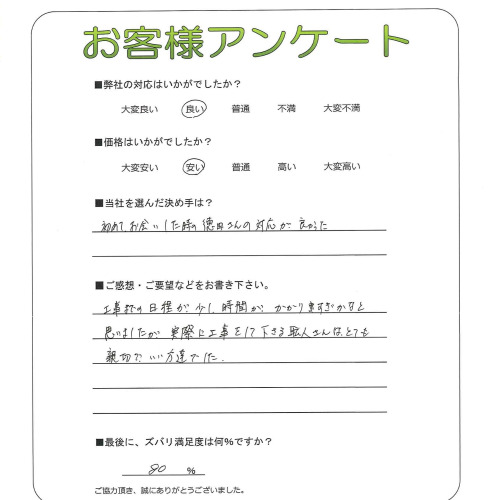 お客様アンケート
■弊社の対応はいかがでしたか？
大変良い 良い 普通 不満 大変不満
■価格はいかがでしたか？
大変安い 安い 普通 高い 大変高い
■当社を選んだ決め手は？
初めてお会いした時の徳田さんの対応が良かった
■ご感想・ご要望などをお書き下さい。
工事までの日程が少し時間がかかりますぎかなと
思いましたが実際に工事をして下さる職人さんはとても
親切でいい方達でした。
■最後に、ズバリ満足度は何％ですか？
80 ％
ご協力頂き、誠にありがとうございました。